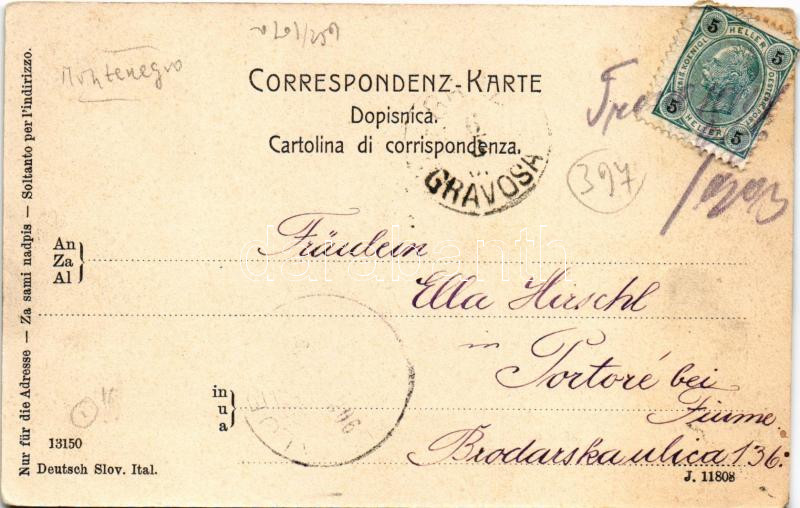 Montenegro
CORRESPONDENZ-KARTE
Dopisnica.
Cartolina di corrispondenza.
GRAVOSA
5 HELLER 5
5 HELLER 5
397
Nur für die Adresse — Za sami nadpis — Soltanto per l'indirizzo.
An
Za
Al
Fräulein
Ella Hirschl
in
Portoré bei
Fiume.
in
u
a
Brodarska ulica 136.
13150
Deutsch Slov. Ital.
J. 11808